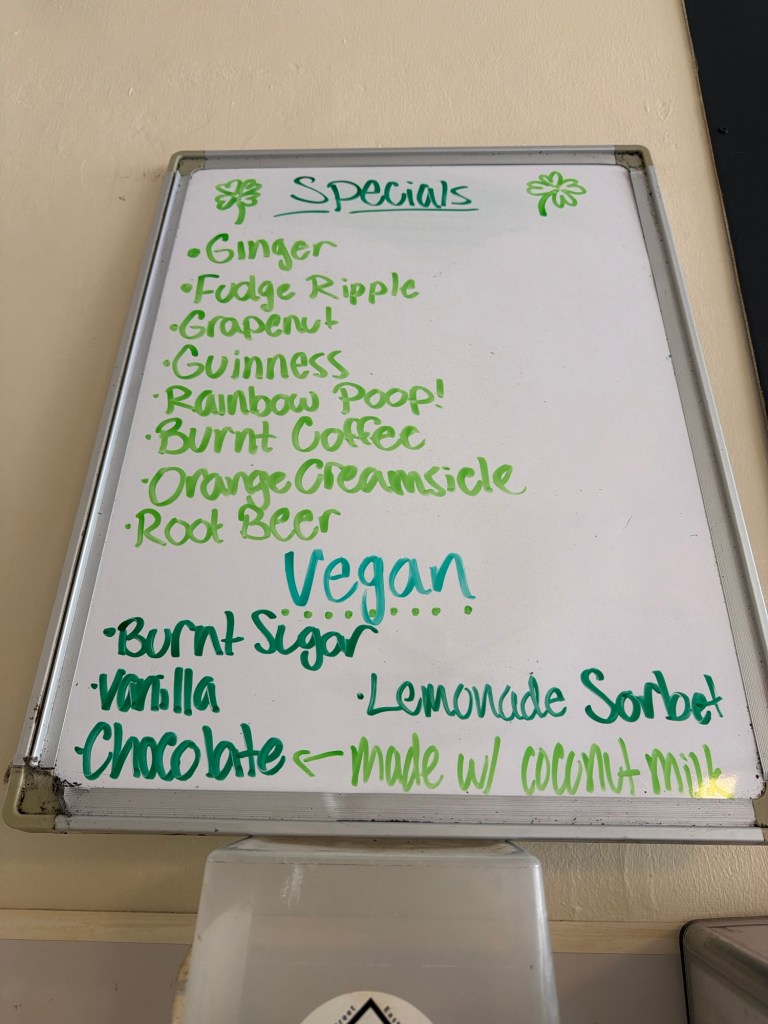 Specials
•Ginger
•Fudge Ripple
•Grapenut
•Guinness
•Rainbow Poop!
•Burnt Coffee
•Orange Creamsicle
•Root Beer
Vegan
•Burnt Sugar
•Vanilla
•Lemonade Sorbet
•Chocolate ← made w/ coconut milk